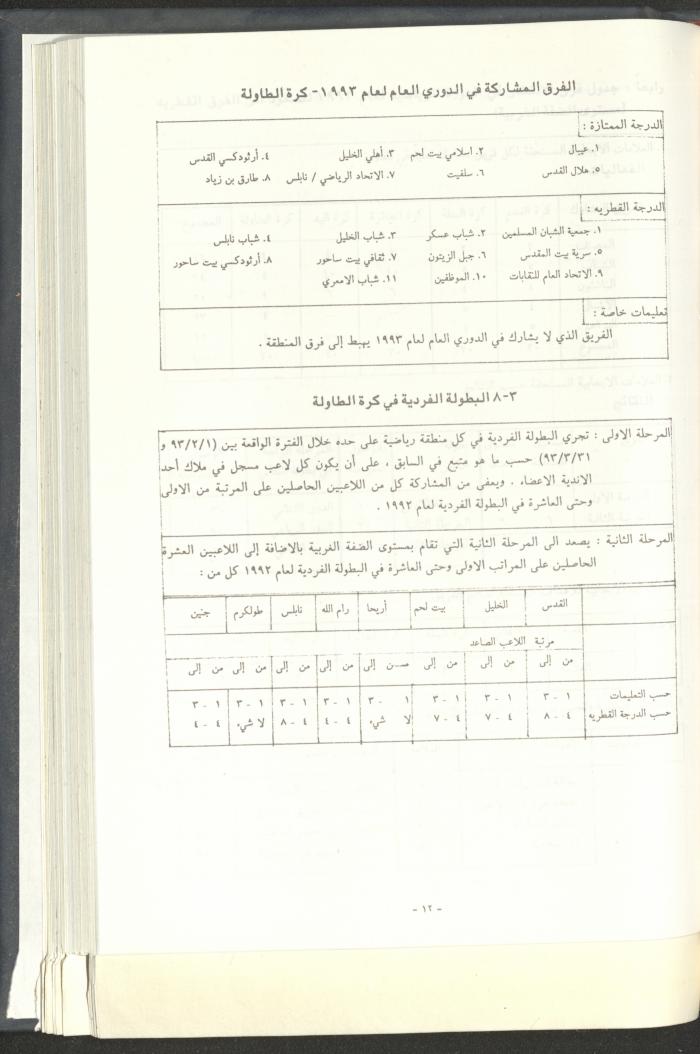 الفرق المشاركة في الدوري العام لعام ١٩٩٣ - كرة الطاولة
الدرجة الممتازة :
١. عيبال ٢. اسلامي بيت لحم ٣. أهلي الخليل ٤. أرثودكسي القدس
٥. هلال القدس ٦. سلفيت ٧. الاتحاد الرياضي / نابلس ٨. طارق بن زياد
الدرجة القطريه :
١. جمعية الشبان المسلمين ٢. شباب عسكر ٣. شباب الخليل ٤. شباب نابلس
٥. سرية بيت المقدس ٦. جبل الزيتون ٧. ثقافي بيت ساحور ٨. أرثودكسي بيت ساحور
٩. الاتحاد العام للنقابات ١٠. الموظفين ١١. شباب الامعري
تعليمات خاصة :
الفريق الذي لا يشارك في الدوري العام لعام ١٩٩٣ يهبط إلى فرق المنطقة .
٣-٨ البطولة الفردية في كرة الطاولة
المرحلة الاولى : تجري البطولة الفردية في كل منطقة رياضية على حده خلال الفترة الواقعة بين (٩٣/٢/١ و
٩٣/٣/٣١) حسب ما هو متبع في السابق ، على أن يكون كل لاعب مسجل في ملاك أحد
الاندية الاعضاء . ويعفى من المشاركة كل من اللاعبين الحاصلين على المرتبة من الاولى
وحتى العاشرة في البطولة الفردية لعام ١٩٩٢ .
المرحلة الثانية : يصعد الى المرحلة الثانية التي تقام بمستوى الضفة الغربية بالاضافة إلى اللاعبين العشرة
الحاصلين على المراتب الاولى وحتى العاشرة في البطولة الفردية لعام ١٩٩٢ كل من :
القدس الخليل بيت لحم أريحا رام الله نابلس طولكرم جنين
مرتبة اللاعب الصاعد
من إلى من إلى من إلى من إلى من إلى من إلى من إلى من إلى
حسب التعليمات ١ - ٣ ١ - ٣ ١ - ٣ ١ - ٣ ١ - ٣ ١ - ٣ ١ - ٣ ١ - ٣
حسب الدرجة القطريه ٤ - ٨ ٤ - ٧ ٤ - ٧ لا شيء ٤ - ٤ ٤ - ٨ لا شيء ٤ - ٤
- ١٢ -